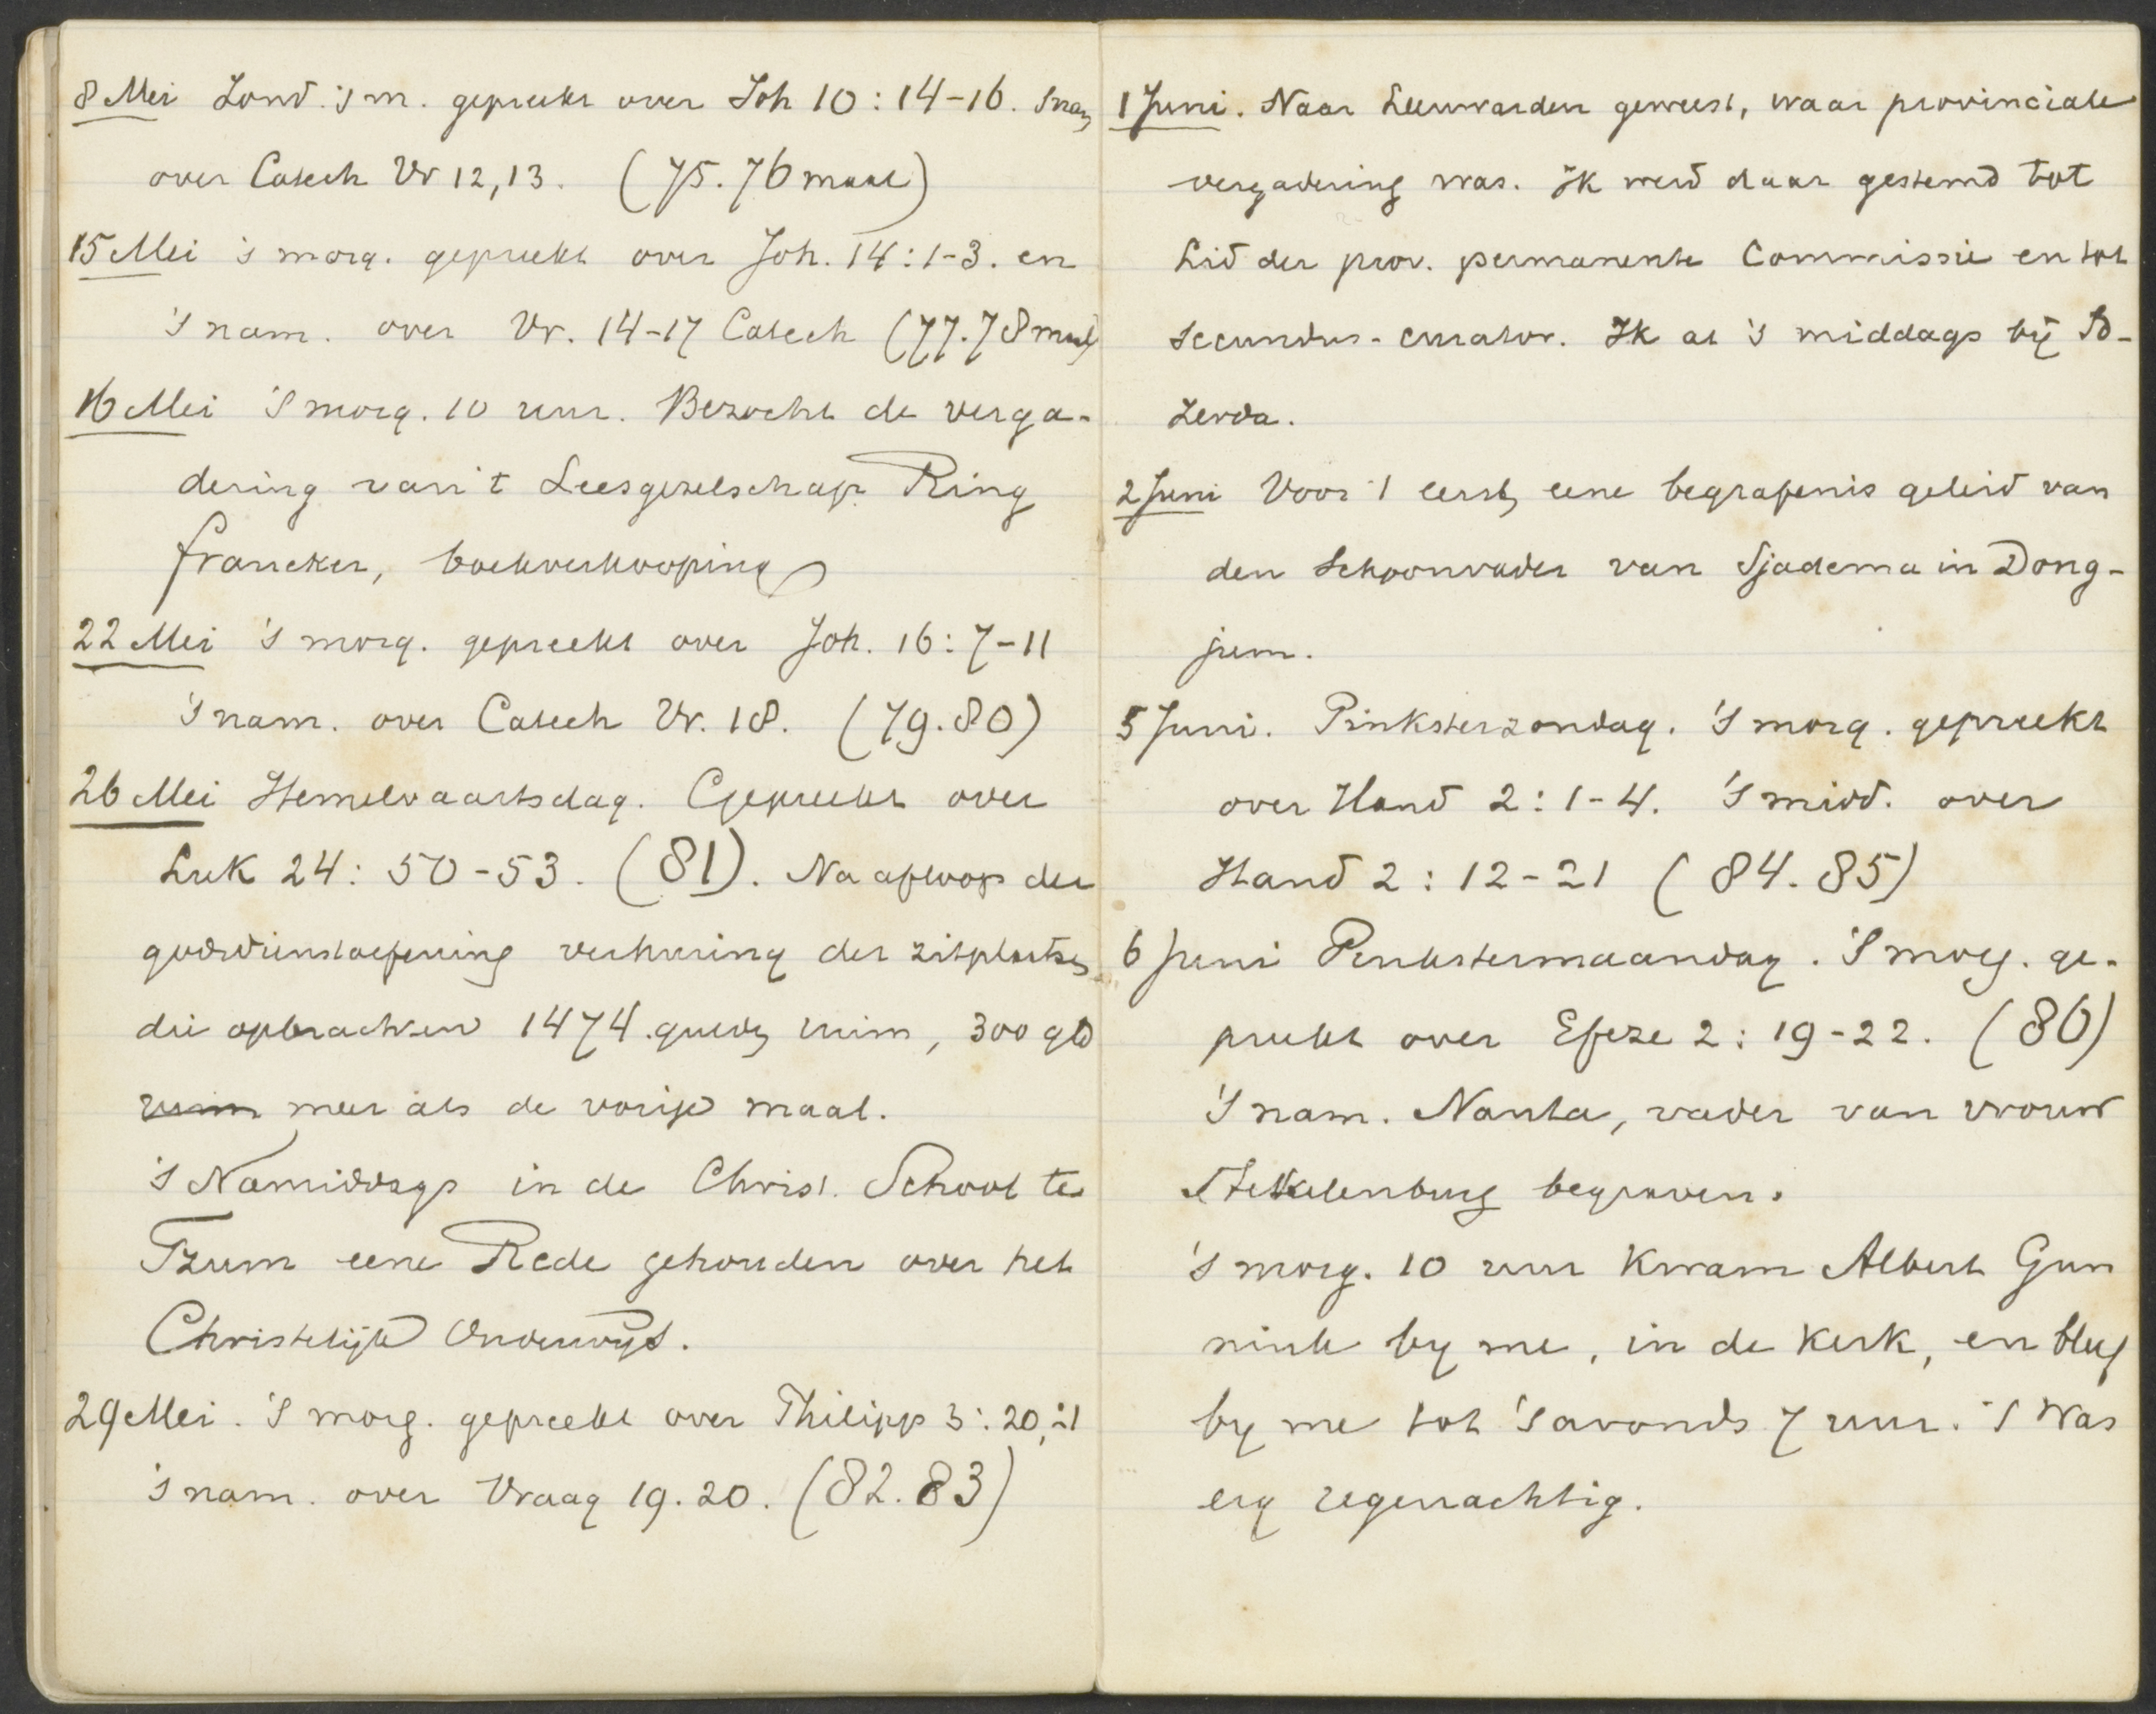 8 Mei Zond. 's m. gepreekt over Joh 10 : 14-16. 's nam
over Catech Vr 12, 13. (75. 76 maal)
15 Mei 's morg. gepreekt over Joh. 14 : 1-3. en
's nam. over Vr. 14-17 Catech (77. 78 maal)
16 Mei 's morg. 10 uur. Bezocht de verga-
dering van 't Leesgezelschap Ring
Franeker, boekverkooping
22 Mei 's morg. gepreekt over Joh. 16 : 7-11
's nam. over Catech Vr. 18. (79. 80)
26 Mei Hemelvaartsdag. Gepreekt over
Luk 24 : 50-53. (81). Na afloop der
godsdienstoefening verhuring der zitplaatsen
die opbrachten 1474 guld ruim, 300 gld
ruim meer als de vorige maal.
's Namiddags in de Christ. School te
Tzum eene Rede gehouden over het
Christelijk Onderwijs.
29 Mei. 's morg. gepreekt over Philipp 3 : 20, 21
's nam. over Vraag 19. 20. (82. 83)
1 Juni. Naar Leeuwarden geweest, waar provinciale
vergadering was. Ik werd daar gestemd tot
Lid der prov. permanente Commissie en tot
secundus-curator. Ik at 's middags bij
2 Juni Voor 't eerst eene begrafenis geleid van
den Schoonvader van Sjadema in Dong-
jum.
5 Juni. Pinksterzondag. 's morg. gepreekt
over Hand 2 : 1-4. 's midd. over
Hand 2 : 12-21 (84. 85)
6 Juni Pinkstermaandag. 's morg. ge-
preekt over Efeze 2 : 19-22. (86)
's nam. Nauta, vader van vrouw
Stekelenburg begraven.
's morg. 10 uur kwam Albert Gun
nink by me, in de kerk, en bleef
by me tot 's avonds 7 uur. 't Was
erg regenachtig.